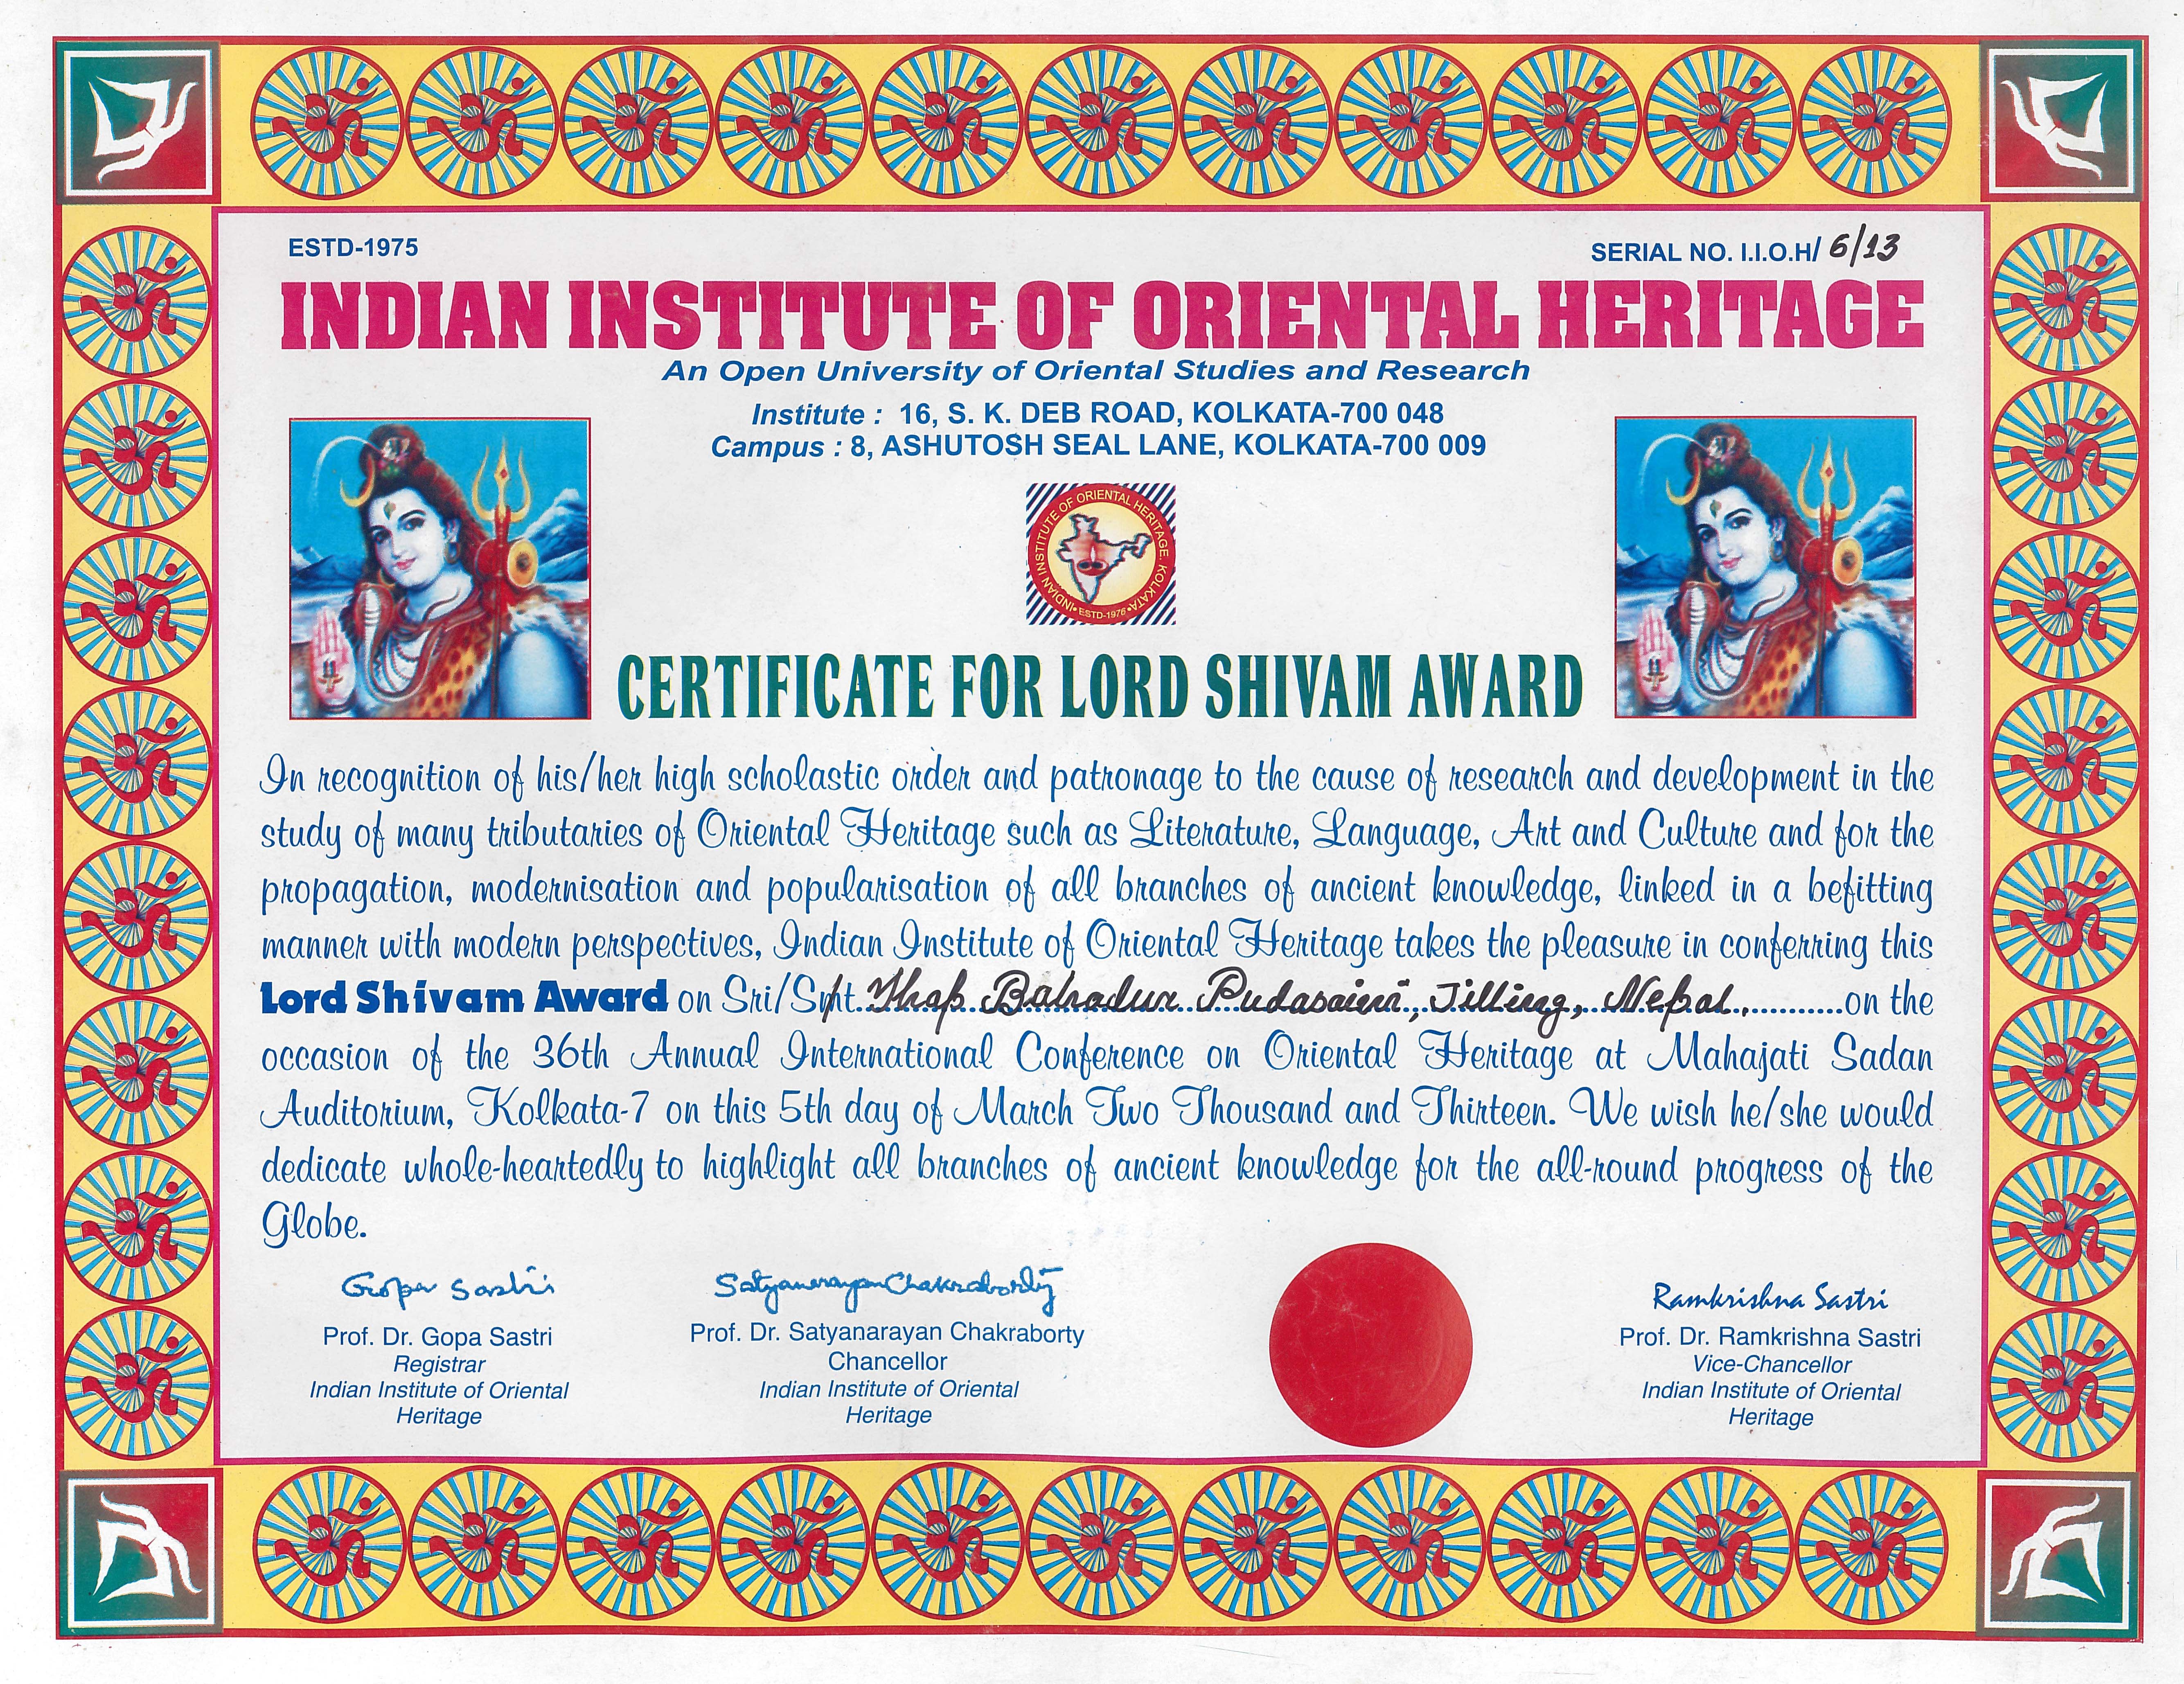 ESTD-1975
SERIAL NO. I.I.O.H/ 6/13
INDIAN INSTITUTE OF ORIENTAL HERITAGE
An Open University of Oriental Studies and Research
Institute : 16, S. K. DEB ROAD, KOLKATA-700 048
Campus : 8, ASHUTOSH SEAL LANE, KOLKATA-700 009
INDIAN INSTITUTE OF ORIENTAL HERITAGE, KOLKATA
ESTD-1975
CERTIFICATE FOR LORD SHIVAM AWARD
In recognition of his/her high scholastic order and patronage to the cause of research and development in the
study of many tributaries of Oriental Heritage such as Literature, Language, Art and Culture and for the
propagation, modernisation and popularisation of all branches of ancient knowledge, linked in a befitting
manner with modern perspectives, Indian Institute of Oriental Heritage takes the pleasure in conferring this
Lord Shivam Award on Sri/Smt. Bahadur Pudasaini, Nepal. on the
occasion of the 36th Annual International Conference on Oriental Heritage at Mahajati Sadan
Auditorium, Kolkata-7 on this 5th day of March Two Thousand and Thirteen. We wish he/she would
dedicate whole-heartedly to highlight all branches of ancient knowledge for the all-round progress of the
Globe.
Gopa Sastri
Prof. Dr. Gopa Sastri
Registrar
Indian Institute of Oriental
Heritage
Satyanarayan Chakraborty
Prof. Dr. Satyanarayan Chakraborty
Chancellor
Indian Institute of Oriental
Heritage
Ramkrishna Sastri
Prof. Dr. Ramkrishna Sastri
Vice-Chancellor
Indian Institute of Oriental
Heritage